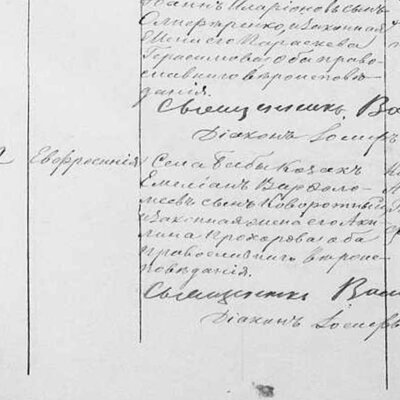 Іоаннъ Иларіоновъ сынъ
и законная
Параскева
Герасимова оба право-
славнаго вѣроисповѣ-
данія.
Священникъ Ва
Діаконъ Іосифъ
Евфросинія
Села Бабы Козакъ
Емеліанъ Варѳоло-
меевъ сынъ Коворотный
и законная жена его Аки-
лина Прохорова оба
православнаго вѣроис-
повѣданія.
Священникъ Васи
Діаконъ Іосифъ